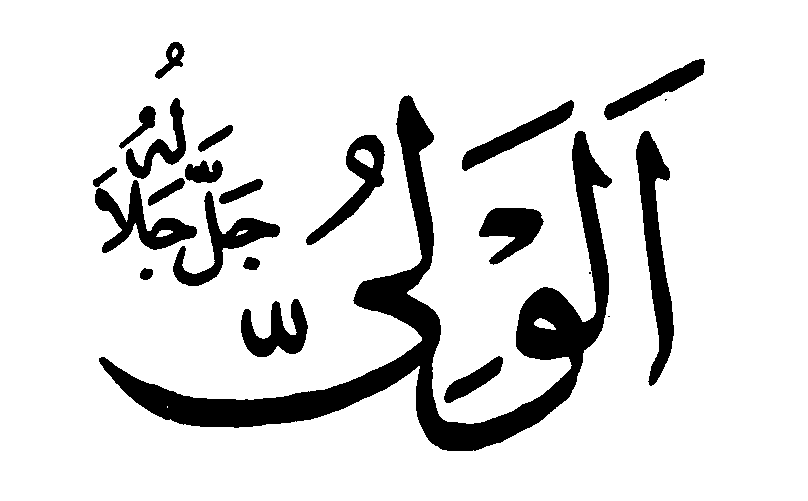 اَلْوَلِىُّ
جَلَّ جَلَالَهُ